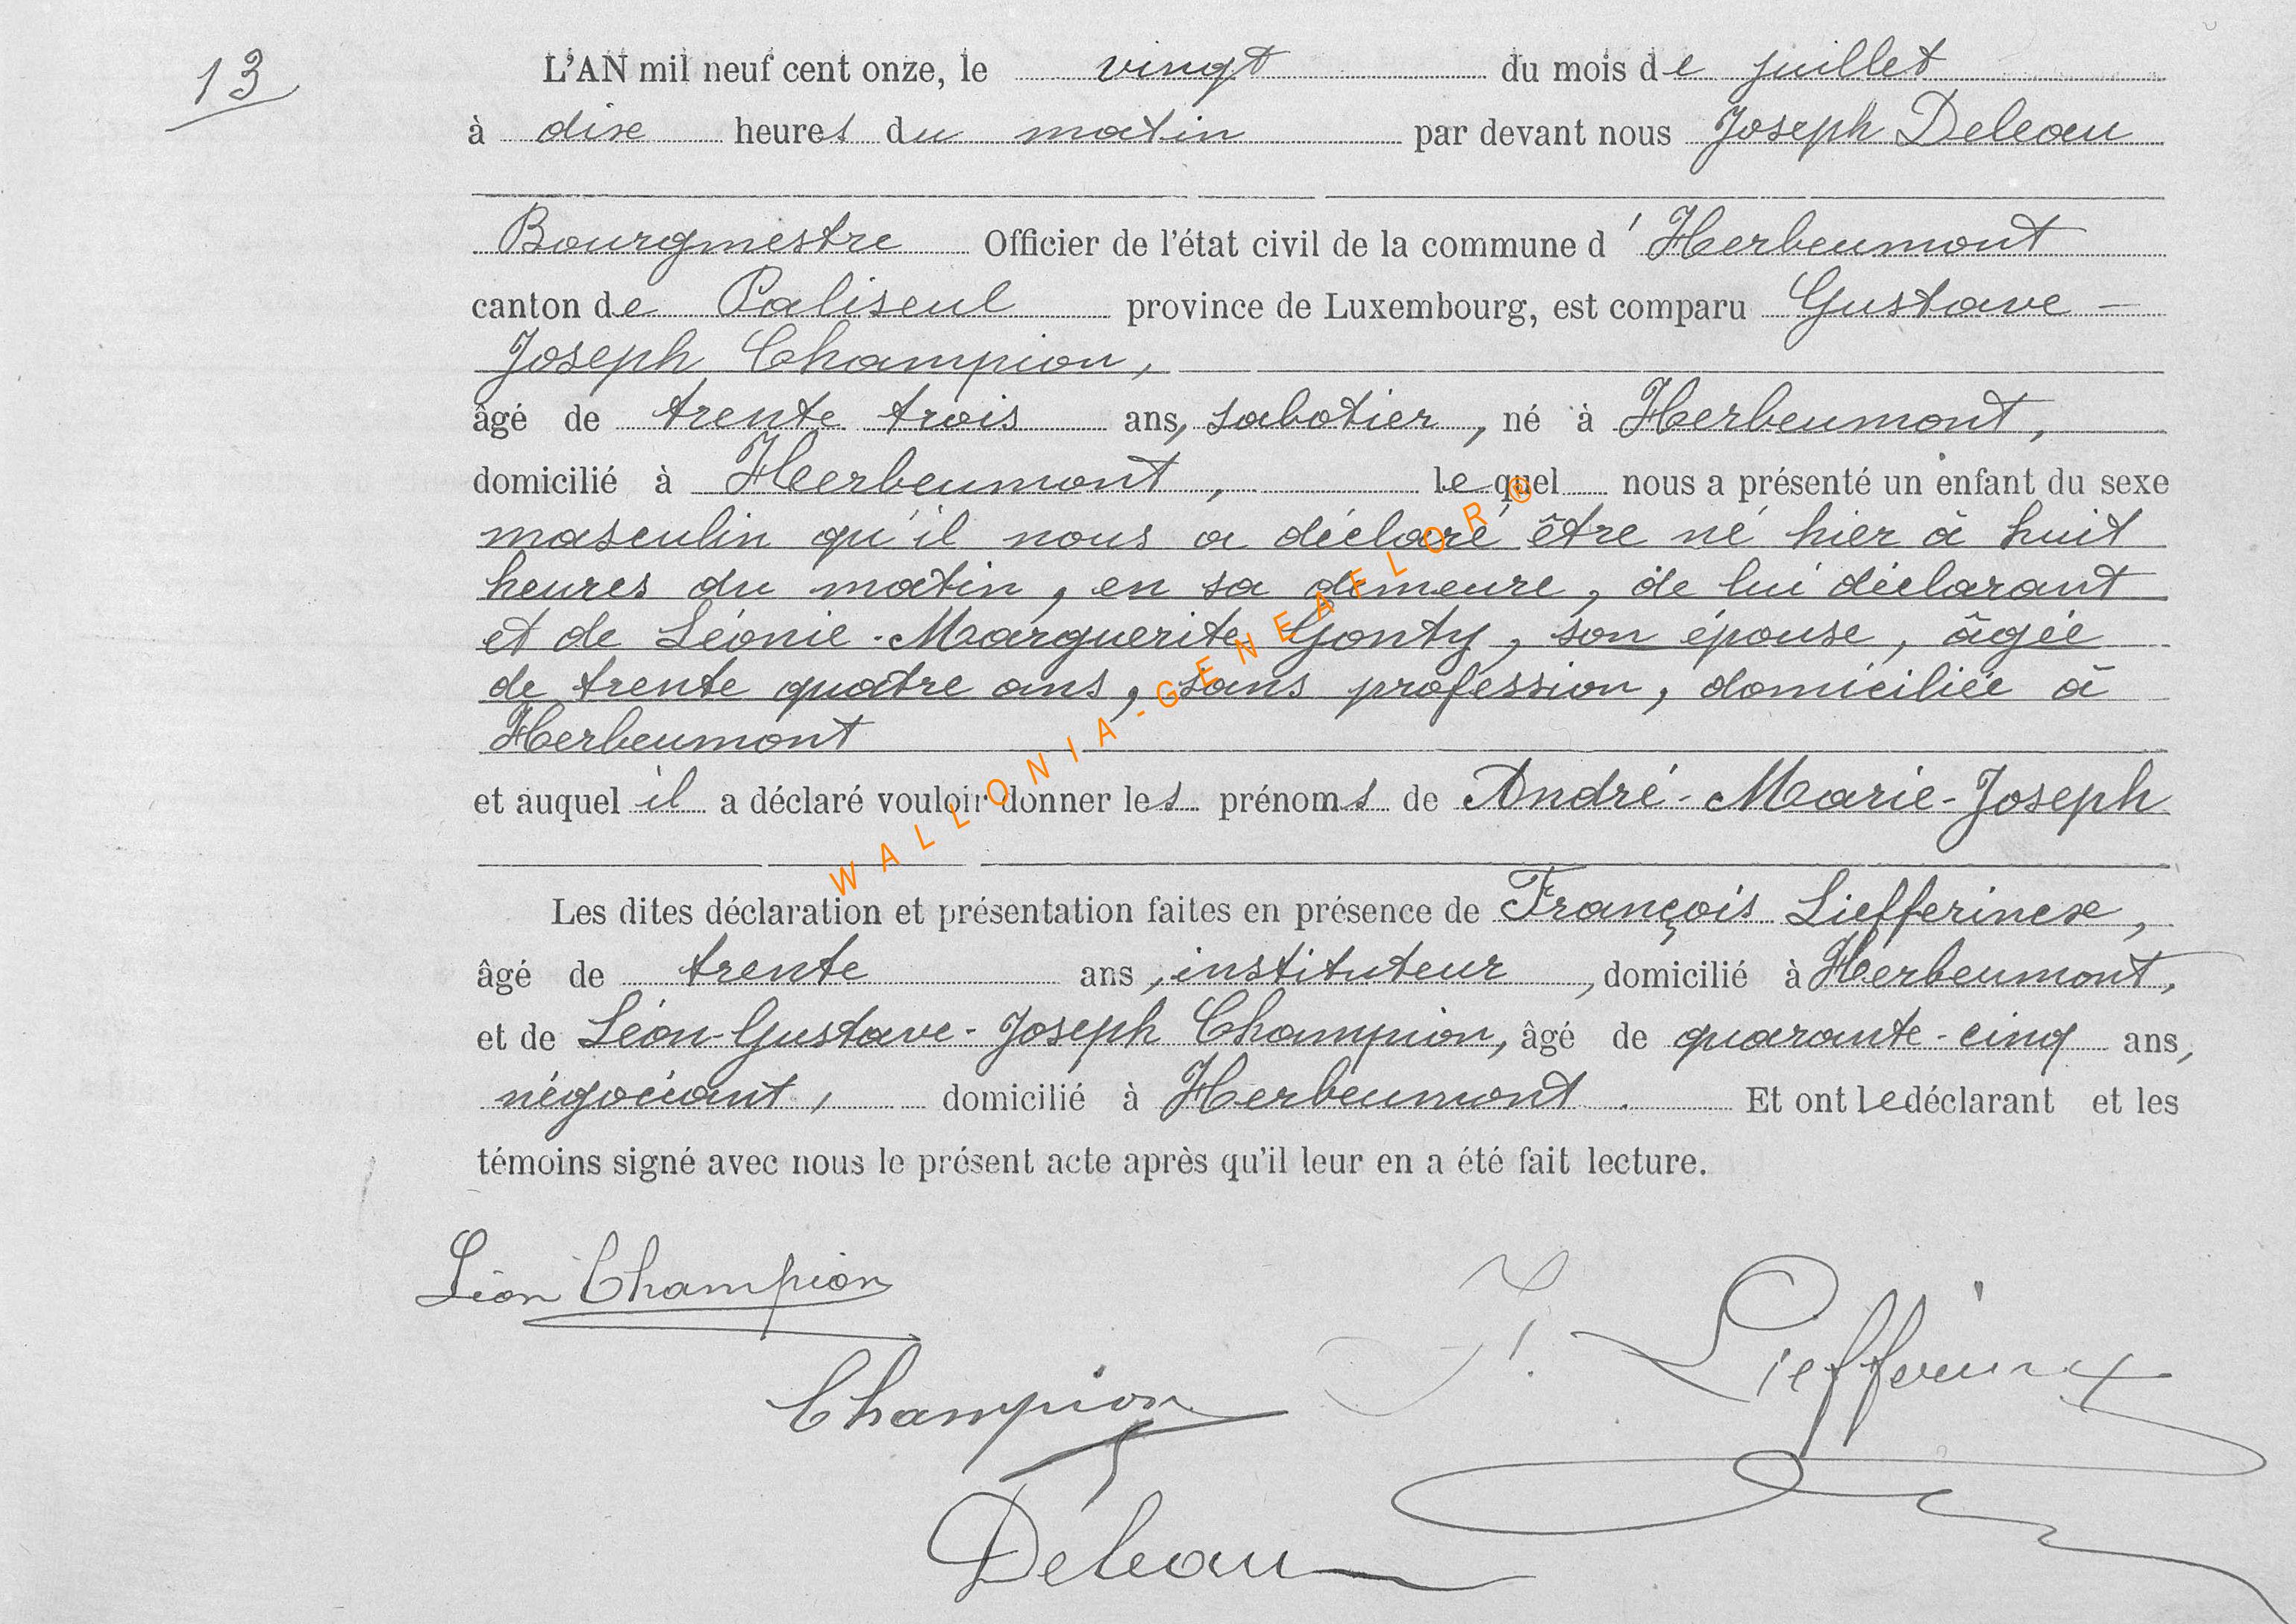 13
L'AN mil neuf cent onze, le vingt du mois de juillet
à dix heures du matin par devant nous Joseph Deleau
Bourgmestre Officier de l'état civil de la commune d'Herbeumont
canton de Paliseul province de Luxembourg, est comparu Gustave-
Joseph Champion,
âgé de trente trois ans, sabotier, né à Herbeumont,
domicilié à Herbeumont, lequel nous a présenté un enfant du sexe
masculin qu'il nous a déclaré être né hier à huit
heures du matin, en sa demeure, de lui déclarant
et de Léonie-Marguerite Gonty, son épouse, âgée
de trente quatre ans, sans profession, domiciliée à
Herbeumont
et auquel il a déclaré vouloir donner les prénoms de André-Marie-Joseph
Les dites déclaration et présentation faites en présence de François Liefferincx,
âgé de trente ans, instituteur, domicilié à Herbeumont,
et de Léon-Gustave-Joseph Champion, âgé de quarante-cinq ans,
négociant, domicilié à Herbeumont. Et ont le déclarant et les
témoins signé avec nous le présent acte après qu'il leur en a été fait lecture.
Léon Champion
F. Liefferincx
Champion
Deleau
WALLONIA-GENEAFLOR®